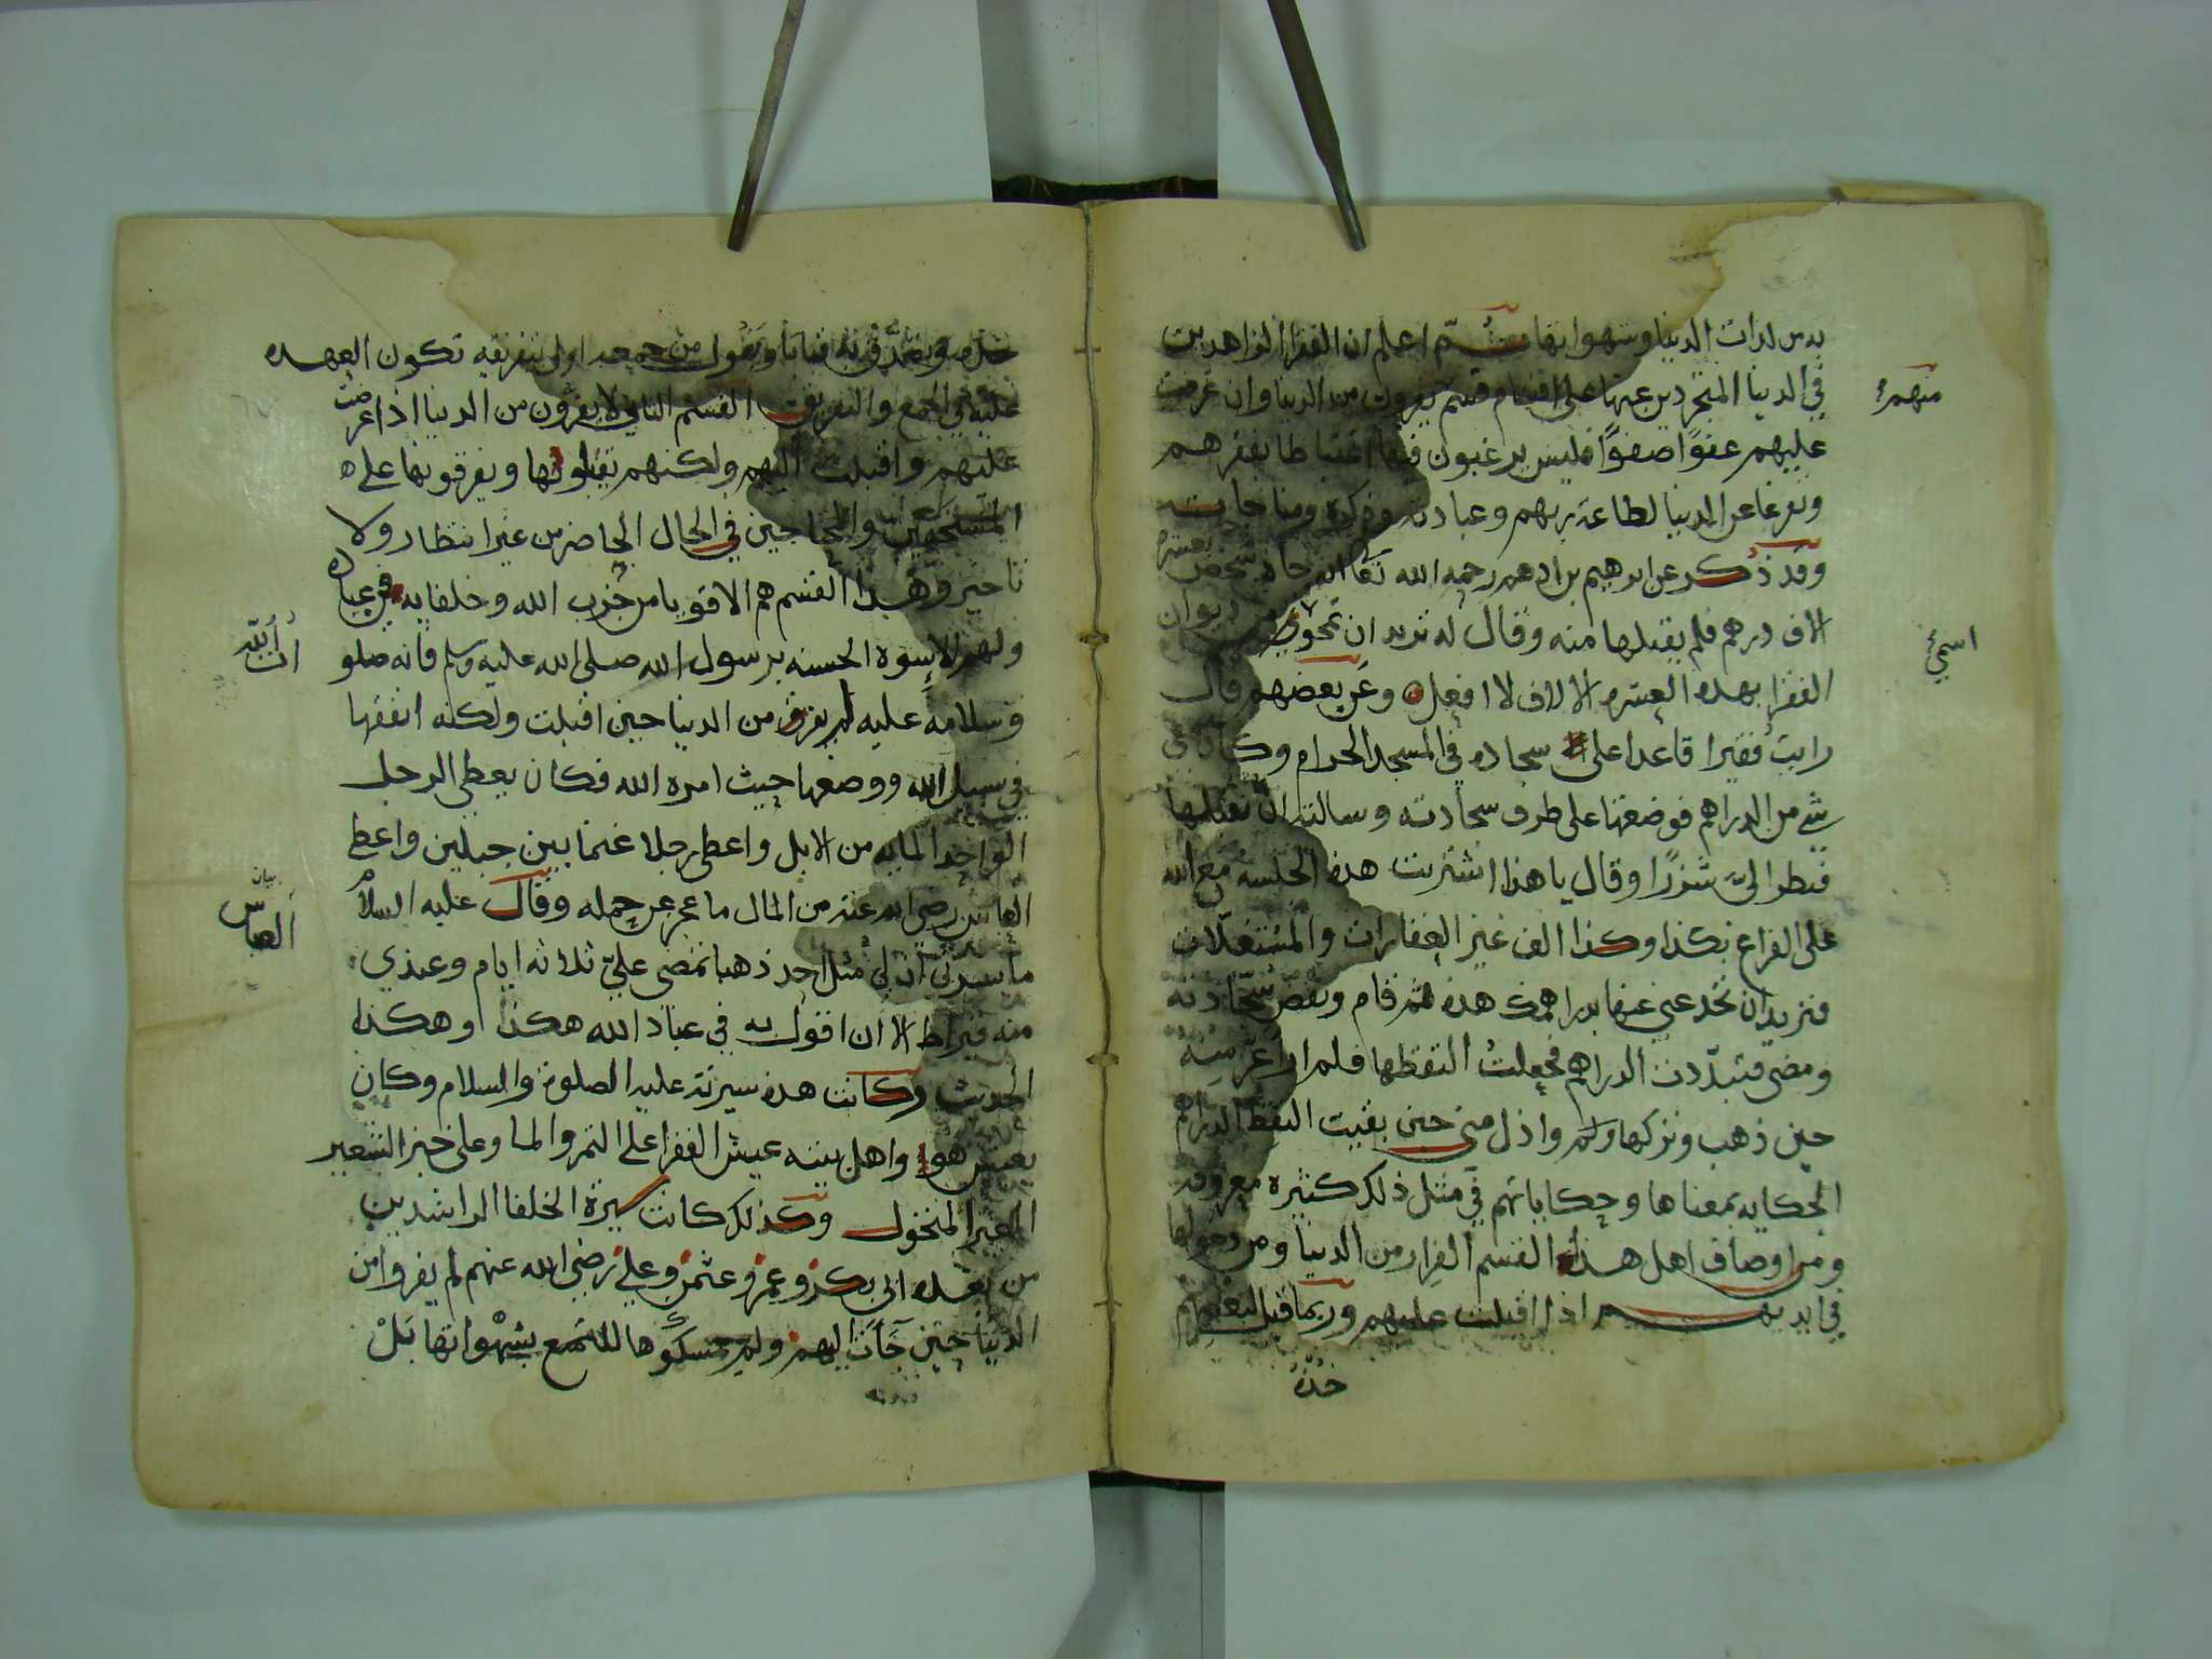 به من لذات الدنيا وشهواتها ثم اعلم ان الفقرا الزاهدين
في الدنيا المتجردين عنها على اقسام قسم يفرون من الدنيا وان عرضت
منهم
عليهم عفوًا صفوًا فليس يرغبون فيها اغتباطا بفقرهم
وتفرغا عن الدنيا لطاعة ربهم وعبادته وذكره ومناجاته
وقد ذكر عن ابرهيم بن ادهم رحمه الله تعا انه جاه شخص بعشرة
الاف درهم فلم يقبلها منه وقال له تريد ان تمحو ديوان
اسمي
الفقرا بهذه العشره الالاف لا افعل وعن بعضهم قال
رايت فقيرا قاعدا على سجاده في المسجد الحرام وكان معي
شي من الدراهم فوضعتها على طرف سجادته وسالته ان يقبلها
فنظر اليّ شزرًا وقال يا هذا اشتريت هذه الجلسه مع الله
على الفراغ بكذا وكذا الف غير العقارات والمستغلات
فتريد ان تخدعني عنها بدراهمك هذه ثم قام ونفض سجادته
ومضى فتبدّدت الدراهم فجعلت التقطها فلم ار اعز منه
حين ذهب وتركها ولم ار اذل مني حين بقيت التقط الدراهم
الحكايه بمعناها وحكاياتهم في مثل ذلك كثيره معروفه
ومن اوصاف اهل هذا القسم الفرار من الدنيا ومن دخولها
في ايديهم اذا اقبلت عليهم وربما قيل لبعضهم
خذه
خذه وتصدق به فيابا ويقول من جمعه اولى بتفريقه تكون العهده
عليه في الجمع والتفريق القسم الثاني لا يفرون من الدنيا اذا عرضت
عليهم واقبلت اليهم ولكنهم يقبلونها ويفرقونها على
المستحقين والمحتاجين في الحال الحاضر من غير انتظار ولا
تاخير وهذا القسم هم الاقويا من حزب الله وخلفايه في عباده
ولهم الاسوة الحسنه برسول الله صلى الله عليه وسلم فانه صلو
ات الله
وسلامه عليه لم يفر من الدنيا حين اقبلت ولكنه انفقها
في سبيل الله ووضعها حيث امره الله فكان يعطي الرجل
الواحد المايه من الابل واعطى رجلا غنما بين جبلين واعطى
العباس رضي الله عنه من المال ما عجز عن حمله وقال عليه السلام
بيان
العباس
ما يسرني ان لي مثل احد ذهبا تمضي عليّ ثلاثه ايام وعندي
منه قيراط الا ان اقول به في عباد الله هكذا وهكذا
الحديث وكانت هذه سيرته عليه الصلوة والسلام وكان
يعيش هو واهل بيته عيش الفقرا على التمر والما وعلى خبز الشعير
الغير المنخول وكذلك كانت سيرة الخلفا الراشدين
من بعده ابي بكر وعمر وعثمن وعلي رضي الله عنهم لم يفروا من
الدنيا حين جأت اليهم ولم يمسكوها للتمتع بشهواتها بل